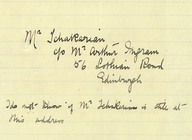 Mr Tchakarian
c/o Mr Arthur Ingram
56 Lothian Road
Edinburgh
Do not know if Mr Tchakarian is still at
this address